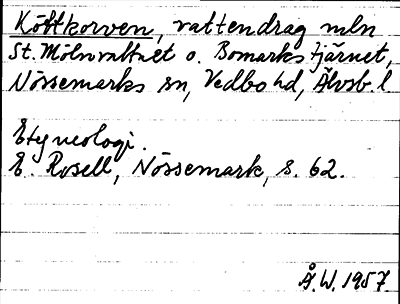 Köttkorven, vattendrag mln
St. Mölnvattnet o. Bomarks tjärnet,
Nössemarks sn, Vedbo hd, Älvsb. l
Etymologi.
E. Rosell, Nössemark, s. 62.
Å. W. 1957.